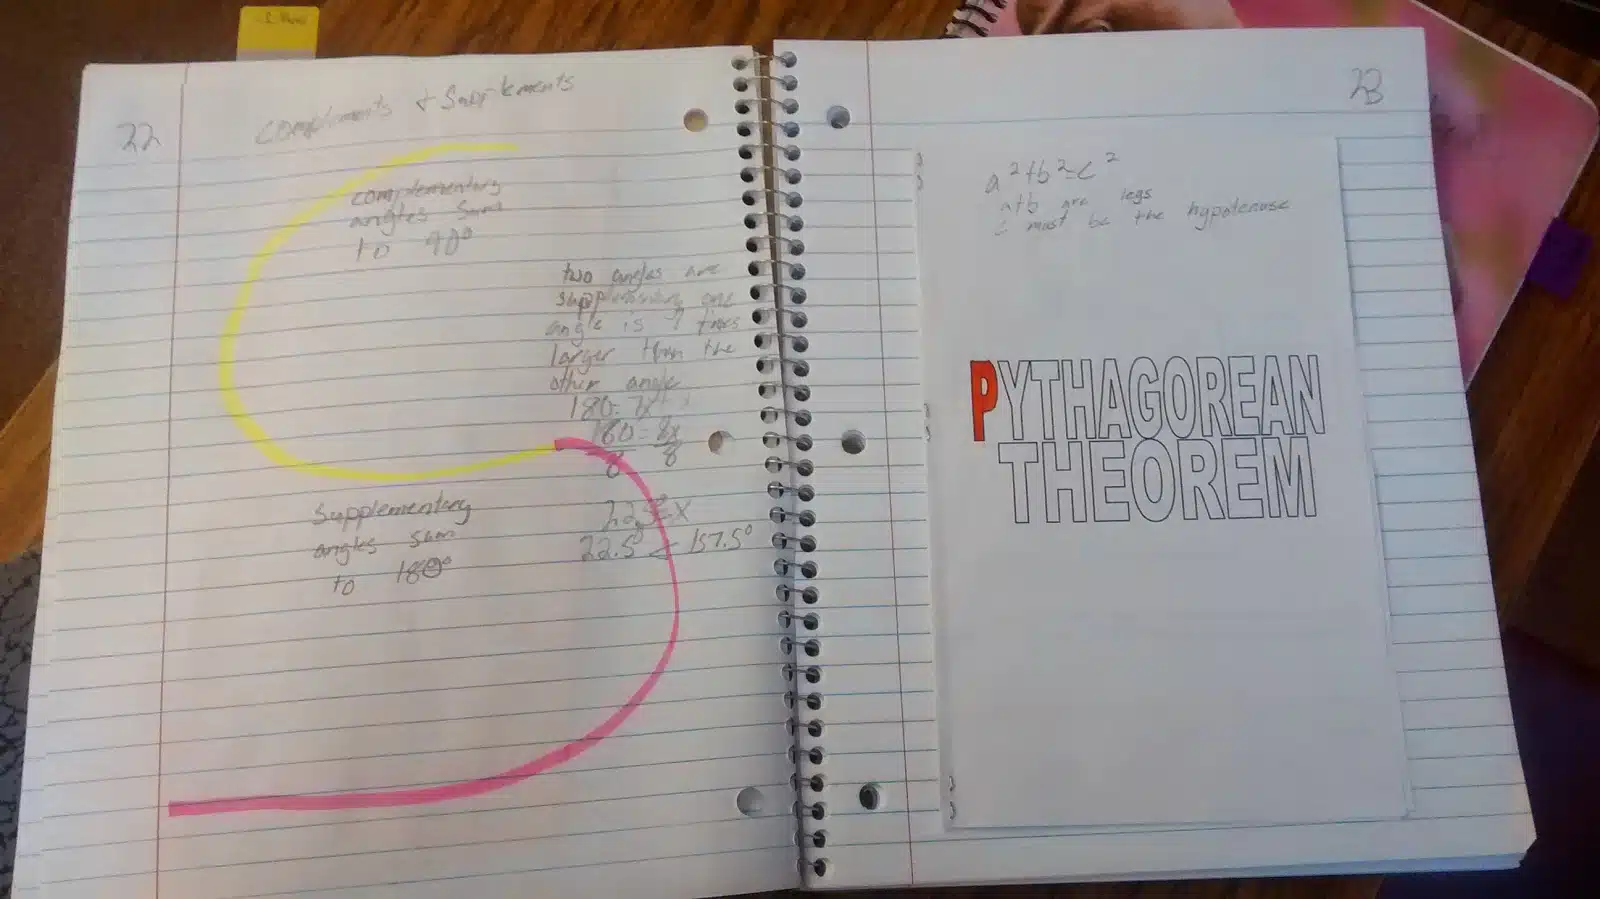 22
Complements + Supplements
complementary
angles sum
to 90°
two angles are
supplementary one
angle is 7 times
larger than the
other angle
180=7x+x
180=8x
8 8
22.5°=x
22.5° 157.5°
Supplementary
angles sum
to 180°
23
a²+b²=c²
a+b are legs
c must be the hypotenuse
PYTHAGOREAN
THEOREM